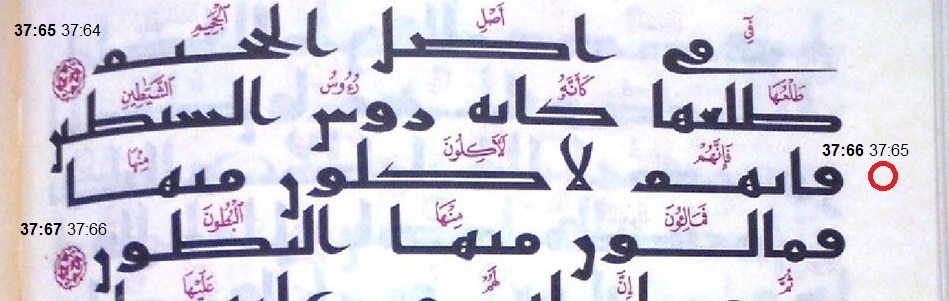 37:65 37:64
فِيٓ أَصْلِ ٱلْجَحِيمِ
فى اصل الجحيم
طَلْعُهَا كَأَنَّهُۥ رُءُوسُ ٱلشَّيَٰطِينِ
طلعها كانه روس الشيطين
37:66 37:65
فَإِنَّهُمْ لَأٓكِلُونَ مِنْهَا
فانهم لاكلون منها
فَمَالِـُٔونَ مِنْهَا ٱلْبُطُونَ
37:67 37:66
فمالون منها البطون
ثُمَّ إِنَّ لَهُمْ عَلَيْهَا